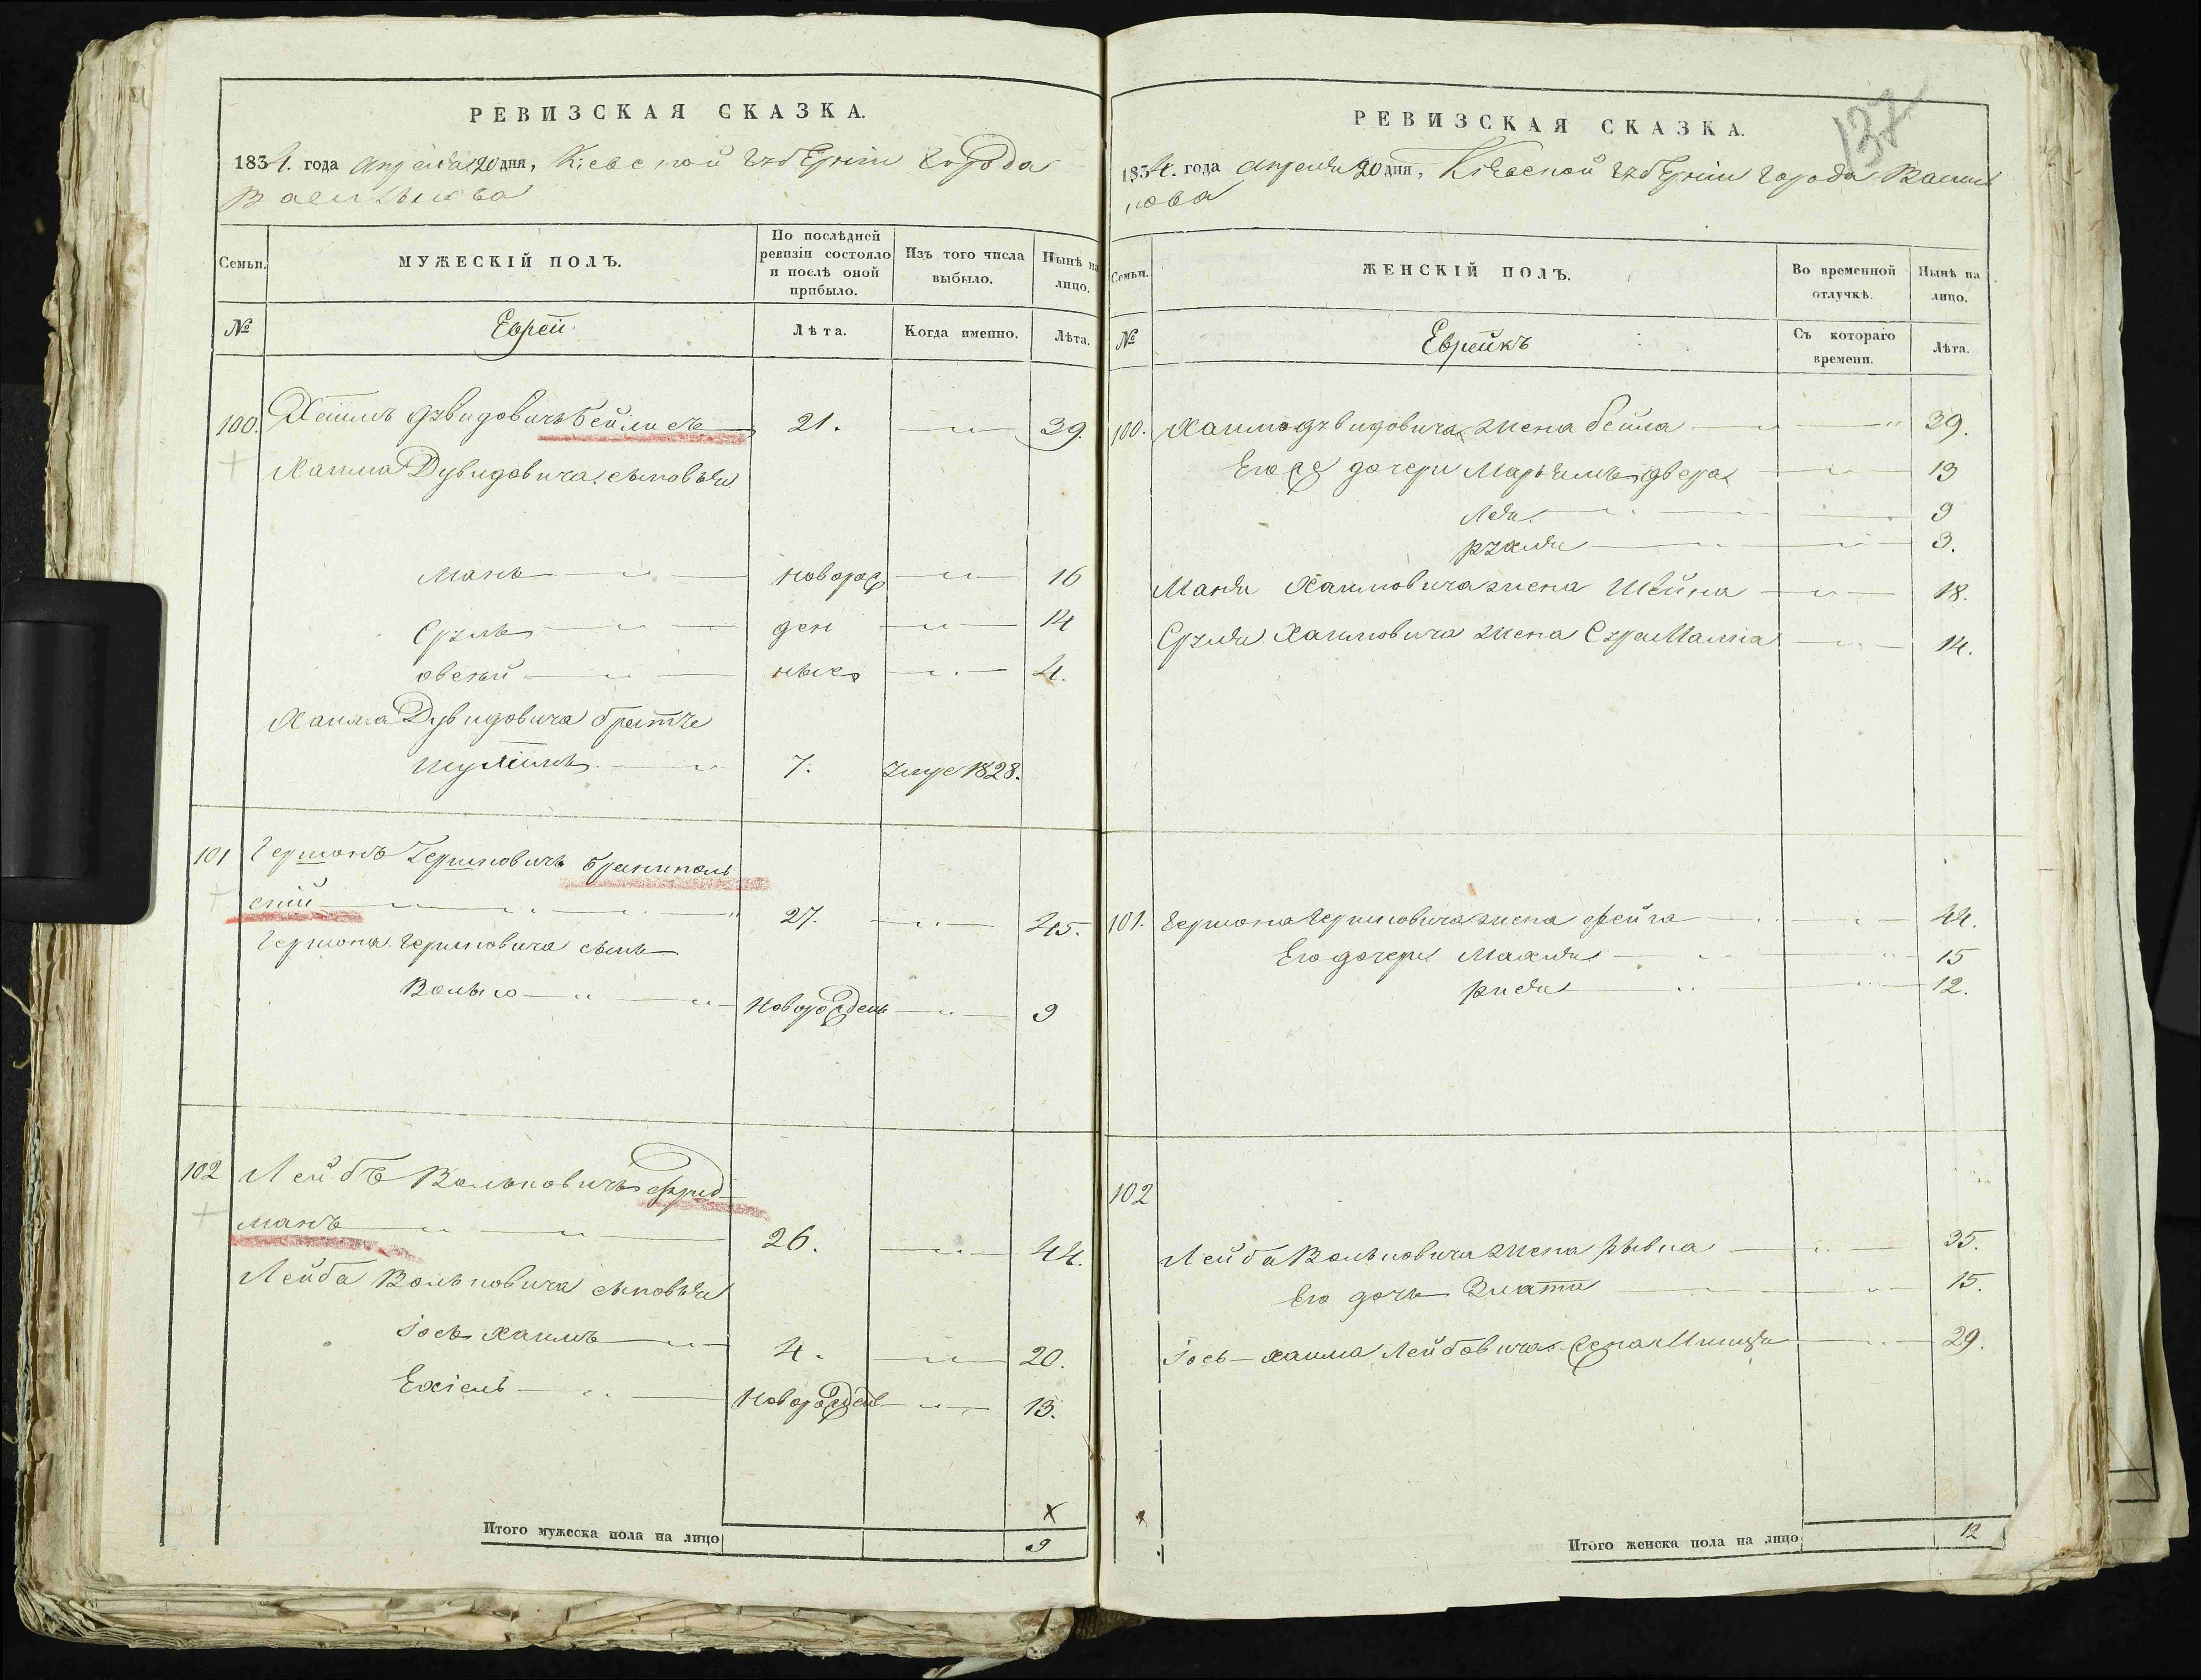 РЕВИЗСКАЯ СКАЗКА.
1834. года апреля 20 дня, Кіевской губерніи города
Василькова
Семьи.
МУЖЕСКІЙ ПОЛЪ.
По послѣдней ревизіи состояло и послѣ оной прибыло.
Изъ того числа выбыло.
Нынѣ на лицо.
№
Евреи
Лѣта.
Когда именно.
Лѣта.
100. Хаимъ Дувидовичъ Бейлисъ 21. 39.
Хаима Дувидовича сыновья
Мань новорож 16
Сруль ден 14
Овсей ныхъ 4.
Хаима Дувидовича братъ
7. умре 1828.
101 Гершонъ Гершковичъ
скій 27. 45.
Гершона Гершковича сынъ
Волько Новорожденъ 9
102 Лейба Вольковичъ Фрид
манъ 26. 44.
Лейба Вольковича сыновья
Іось Хаимъ 4. 20.
Ехіель Новорожденъ 13.
х
Итого мужеска пола на лицо 9
137
РЕВИЗСКАЯ СКАЗКА.
1834. года апреля 20 дня, Кіевской губерніи города Василь
кова
Семьи.
ЖЕНСКІЙ ПОЛЪ.
Во временной отлучкѣ.
Нынѣ на лицо.
№
Еврейкъ
Съ котораго времени.
Лѣта.
100. Хаима Дувидовича жена Бейла 39.
Его же дочери Марьямъ Двера 13
Лея 9
Рухля 3.
Маня Хаимовича жена Шейна 18.
Сруля Хаимовича жена Сура Малка 14.
101. Гершона Гершковича жена Фейга 44.
Его дочери Махля 15
12.
102
Лейба Вольковича жена Рывка 35.
Его дочь Злата 15.
Іось Хаима Лейбовича жена 29.
х
Итого женска пола на лицо 12